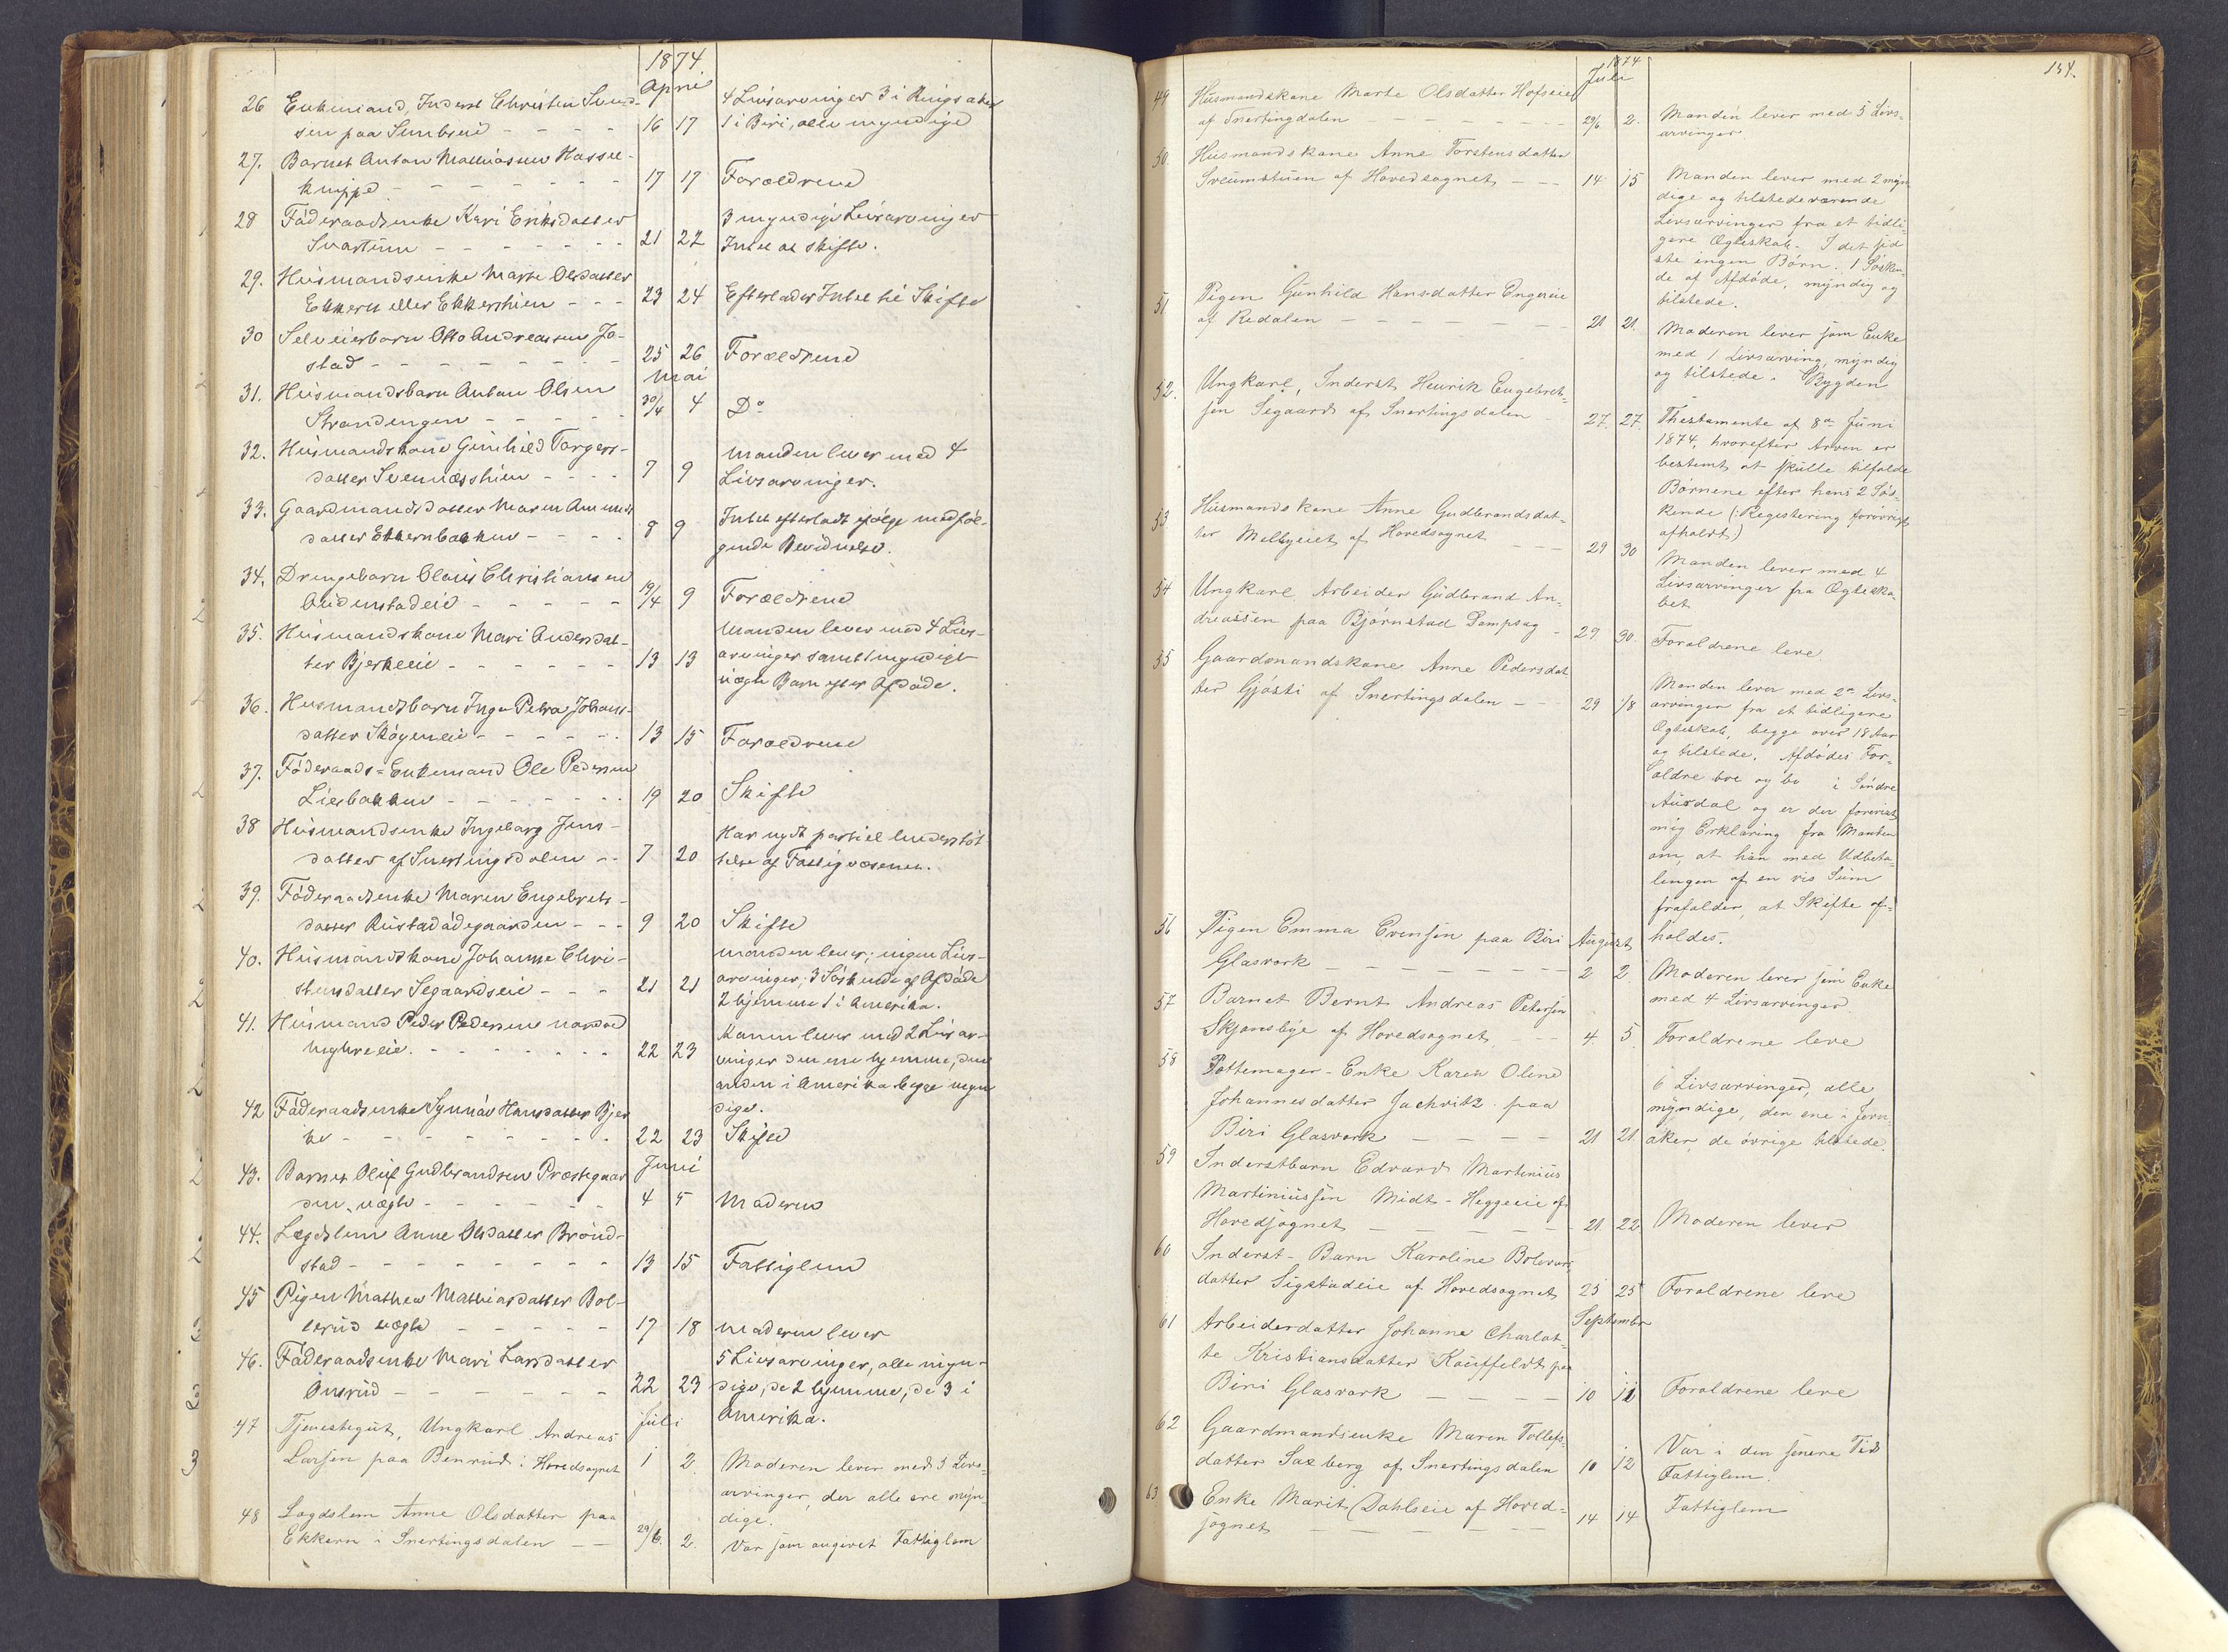 1874.
April
26 Enkemand, Inderst Christen Svend-
sen paa Simbseie - - - - 16 17
4 Livsarvinger 3 i Ringsaker
1 i Biri, alle myndige
27. Barnet Anton Mathiasen Hassel-
knippe - - - - - - - 17 17 Forældrene
28 Föderaadsenke Kari Eriksdatter
Svartuen - - - - - - - 21 22
3 myndige Livsarvinger
Intet at skifte.
29. Husmandsenke Marte Olsdatter
Ekkern eller Ekkershien - - - 23 24 Efterlader Intet til Skifte
30 Selveierbarn Otto Andreassen Jo-
stad - - - - - - - 25 26 Forældrene
Mai
31. Husmandsbarn Anton Olsen
Strandengen - - - - - 30/4 4 Do
32. Husmandskone Gunhild Torgers-
datter Svennæsshien - - - - 7 9
Manden lever med 4
Livsarvinger.
33. Gaardmandsdatter Maren Amunds
datter Ekkernbakken - - - - 8 9
Intet efterladt ifölge medföl-
gende Bevidnelse.
34. Drengebarn Olaus Christiansen
Audenstadeie - - - - - 19/4 9 Forældrene
35. Husmandskone Mari Andersdat-
ter Bjerkeeie - - - - - - 13 13
Manden lever med 4 Livs-
arvinger samt 1 myndigt
uægte Barn efter Afdöde.
36. Husmandsbarn Inga Petra Johans-
datter Skögeneie - - - - - - 13 15 Forældrene
37. Föderaads-Enkemand Ole Pedersen
Liesbakken - - - - - - - 19 20 Skifte
38 Husmandsenke Ingeborg Jens-
datter af Snertingsdalen - - 7 20
Har nydt partiel Understöt
telse af Fattigvæsenet.
39. Föderaadsenke Maren Engebrets-
datter Rustadödegaarden - - - 9 20 Skifte
40. Husmandskone Johanne Chri-
stensdatter Segaardseie - - - 21 21
Manden lever; ingen Livs-
arvinger; 3 Söskende af Afdöde
2 hjemme 1 i Amerika.
41. Husmand Peder Pedersen nordre
Myhreeie. - - - - - - - 22 23
Konen lever med 2 Livsar-
vinger den ene hjemme, den
anden i Amerika begge myn
dige.
42 Föderaadsenke Synnöv Hansdatter Bjer
ke - - - - - - - - - 22 23 Skifte
Juni
43. Barnet Oluf Gudbrandsen Præstegaar
den, uægte - - - - - - 4 5 Moderen
44. Lægdslem Anne Olsdatter Brönd-
stad - - - - - - - - - 13 15 Fattiglem
45 Pigen Mathea Mathiasdatter Bol-
lerud uægte - - - - - 17 18 Moderen lever
46. Föderaadsenke Mari Larsdatter
Onsrud - - - - - - - 22 23
5 Livsarvinger, alle myn-
dige, de 2 hjemme, de 3 i
Amerika.
Juli
47 Tjenestegut, Ungkarl Andreas
Larsen paa Benrud i Hovedsognet 1 2
Moderen lever med 3 Livs-
arvinger, der alle ere myn
dige.
48 Lagdslem Anne Olsdatter paa
Ekkern i Snertingsdalen - - 29/6. 2. Var som angivet Fattiglem
134.
1874
Juli
49 Husmandskone Marte Olsdatter Hofseie
af Snertingdalen - - - - - - 29/6 2.
Manden lever med 5 Livs-
arvinger.
50. Husmandskone Anne Torstensdatter
Sveumstuen af Hovedsognet - - - 14 15
Manden lever med 2 myn
dige og tilstedeværende
Livsarvinger fra et tidli-
gere Ægteskab. I det sid
ste ingen Börn. 1 Sösken-
de af Afdöde, myndig og
tilstede.
51 Pigen Gunhild Hansdatter Engeseie
af Redalen - - - - - - - 21 21.
Moderen lever som Enke
med 1 Livsarving, myndig
og tilstede i Bygden
52. Ungkarl, Inderst Henrik Engebret-
sen Segaard af Snertingsdalen - 27. 27.
Thestamente af 8de Juni
1874, hvorefter Arven er
bestemt at skulle tilfalde
Börnene efter hans 2 Sös-
kende (: Registering forövrigt
afholdt)
53 Husmandskone Anne Gudbrandsdat-
ter Melbyeiet af Hovedsognet - - - 29 30
Manden lever med 4
Livsarvinger fra Ægteska-
bet
54 Ungkarl, Arbeider Gudbrand An-
dreassen paa Bjørnstad Dampsag - 29 30. Foraldrene leve.
55 Gaardmandskone Anne Pedersdat
ter Gjösti af Snertingsdalen - - - 29 1/8
Manden lever med 2de Livs-
arvinger fra et tidligere
Ægteskab, begge over 18 Aar
og tilstede. Afdödes For-
ældre bve og bo i Söndre
Ausdal og er der forevist
mig Erklæring fra Manden
om, at han med Udbeta-
lingen af en vis Sum
frafalder, at Skifte af-
holdes.
August
56 Pigen Emma Evensen paa Biri
Glasværk - - - - - - - - 2 2
Moderen lever som Enke
med 4 Livsarvinger.
57 Barnet Bernt Andreas Petersen
Skjønsbye af Hovedsognet, - - - 4. 5. Foraldrene leve
58 Pottemager-Enke Karen Oline
Johannesdatter Jachwitz paa
Biri Glasværk - - - - 21 21.
6 Livsarvinger, alle
myndige, den ene i Jevn-
aker, de övrige tilstede.
59 Inderstbarn Edvard Martinius
Martiniussen Midt-Heggeeie af
Hovedsognet - - - - - - 21 22 Moderen lever
60 Inderst-Barn Karoline Bolevars
datter Sigstadeie af Hovedsognet 25 25 Foraldrene leve
September
61 Arbeiderdatter Johanne Charlot
te Kristiansdatter Kauffeldt paa
Biri Glasværk - - - - 10 11 Foraldrene leve
62 Gaardmandsenke Maren Tollefs-
datter Saxberg af Snertingsdalen 10 12
Var i den senere Tid
Fattiglem.
63 Enke Marit Dahlseie af Hoved-
sognet - - - - - - - 14 14 Fattiglem